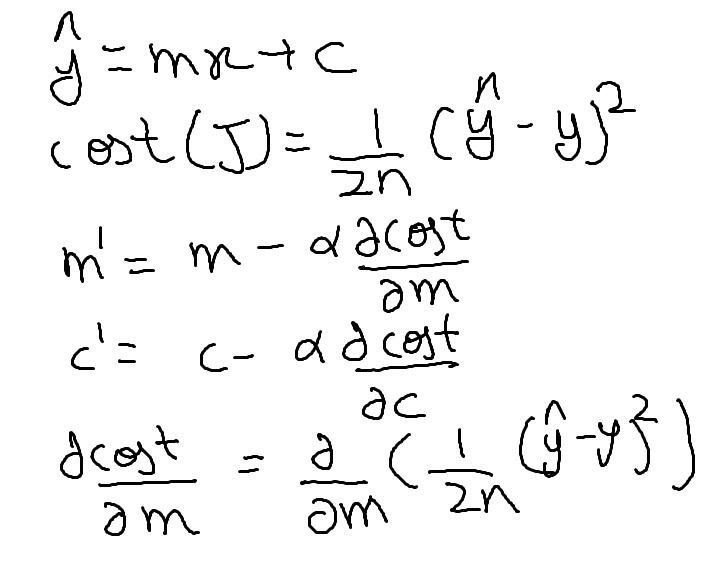 ŷ = mx + c
cost(J) = 1/2n (ŷ - y)²
m' = m - α ∂cost/∂m
c' = c - α ∂cost/∂c
∂cost/∂m = ∂/∂m (1/2n (ŷ - y)²)